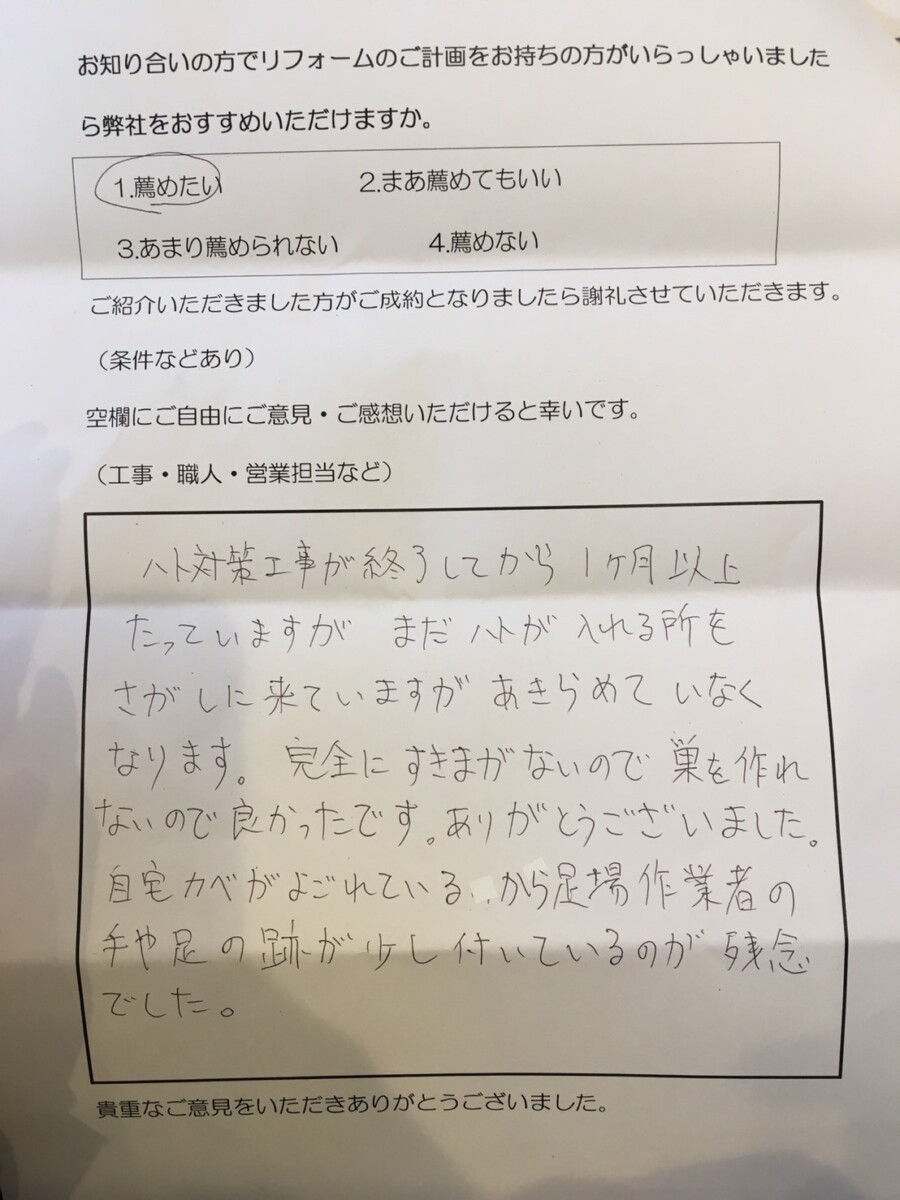 お知り合いの方でリフォームのご計画をお持ちの方がいらっしゃいました
ら弊社をおすすめいただけますか。
1.薦めたい 2.まあ薦めてもいい
3.あまり薦められない 4.薦めない
ご紹介いただきました方がご成約となりましたら謝礼させていただきます。
（条件などあり）
空欄にご自由にご意見・ご感想いただけると幸いです。
（工事・職人・営業担当など）
ハト対策工事が終了してから 1ヶ月以上
たっていますが まだ ハトが 入れる所を
さがしに来ていますが あきらめて いなく
なります。 完全に すきまがないので 巣を作れ
ないので良かったです。ありがとうございました。
自宅カベがよごれている から足場作業者の
手や足の跡が少し付いているのが 残念
でした。
貴重なご意見をいただきありがとうございました。